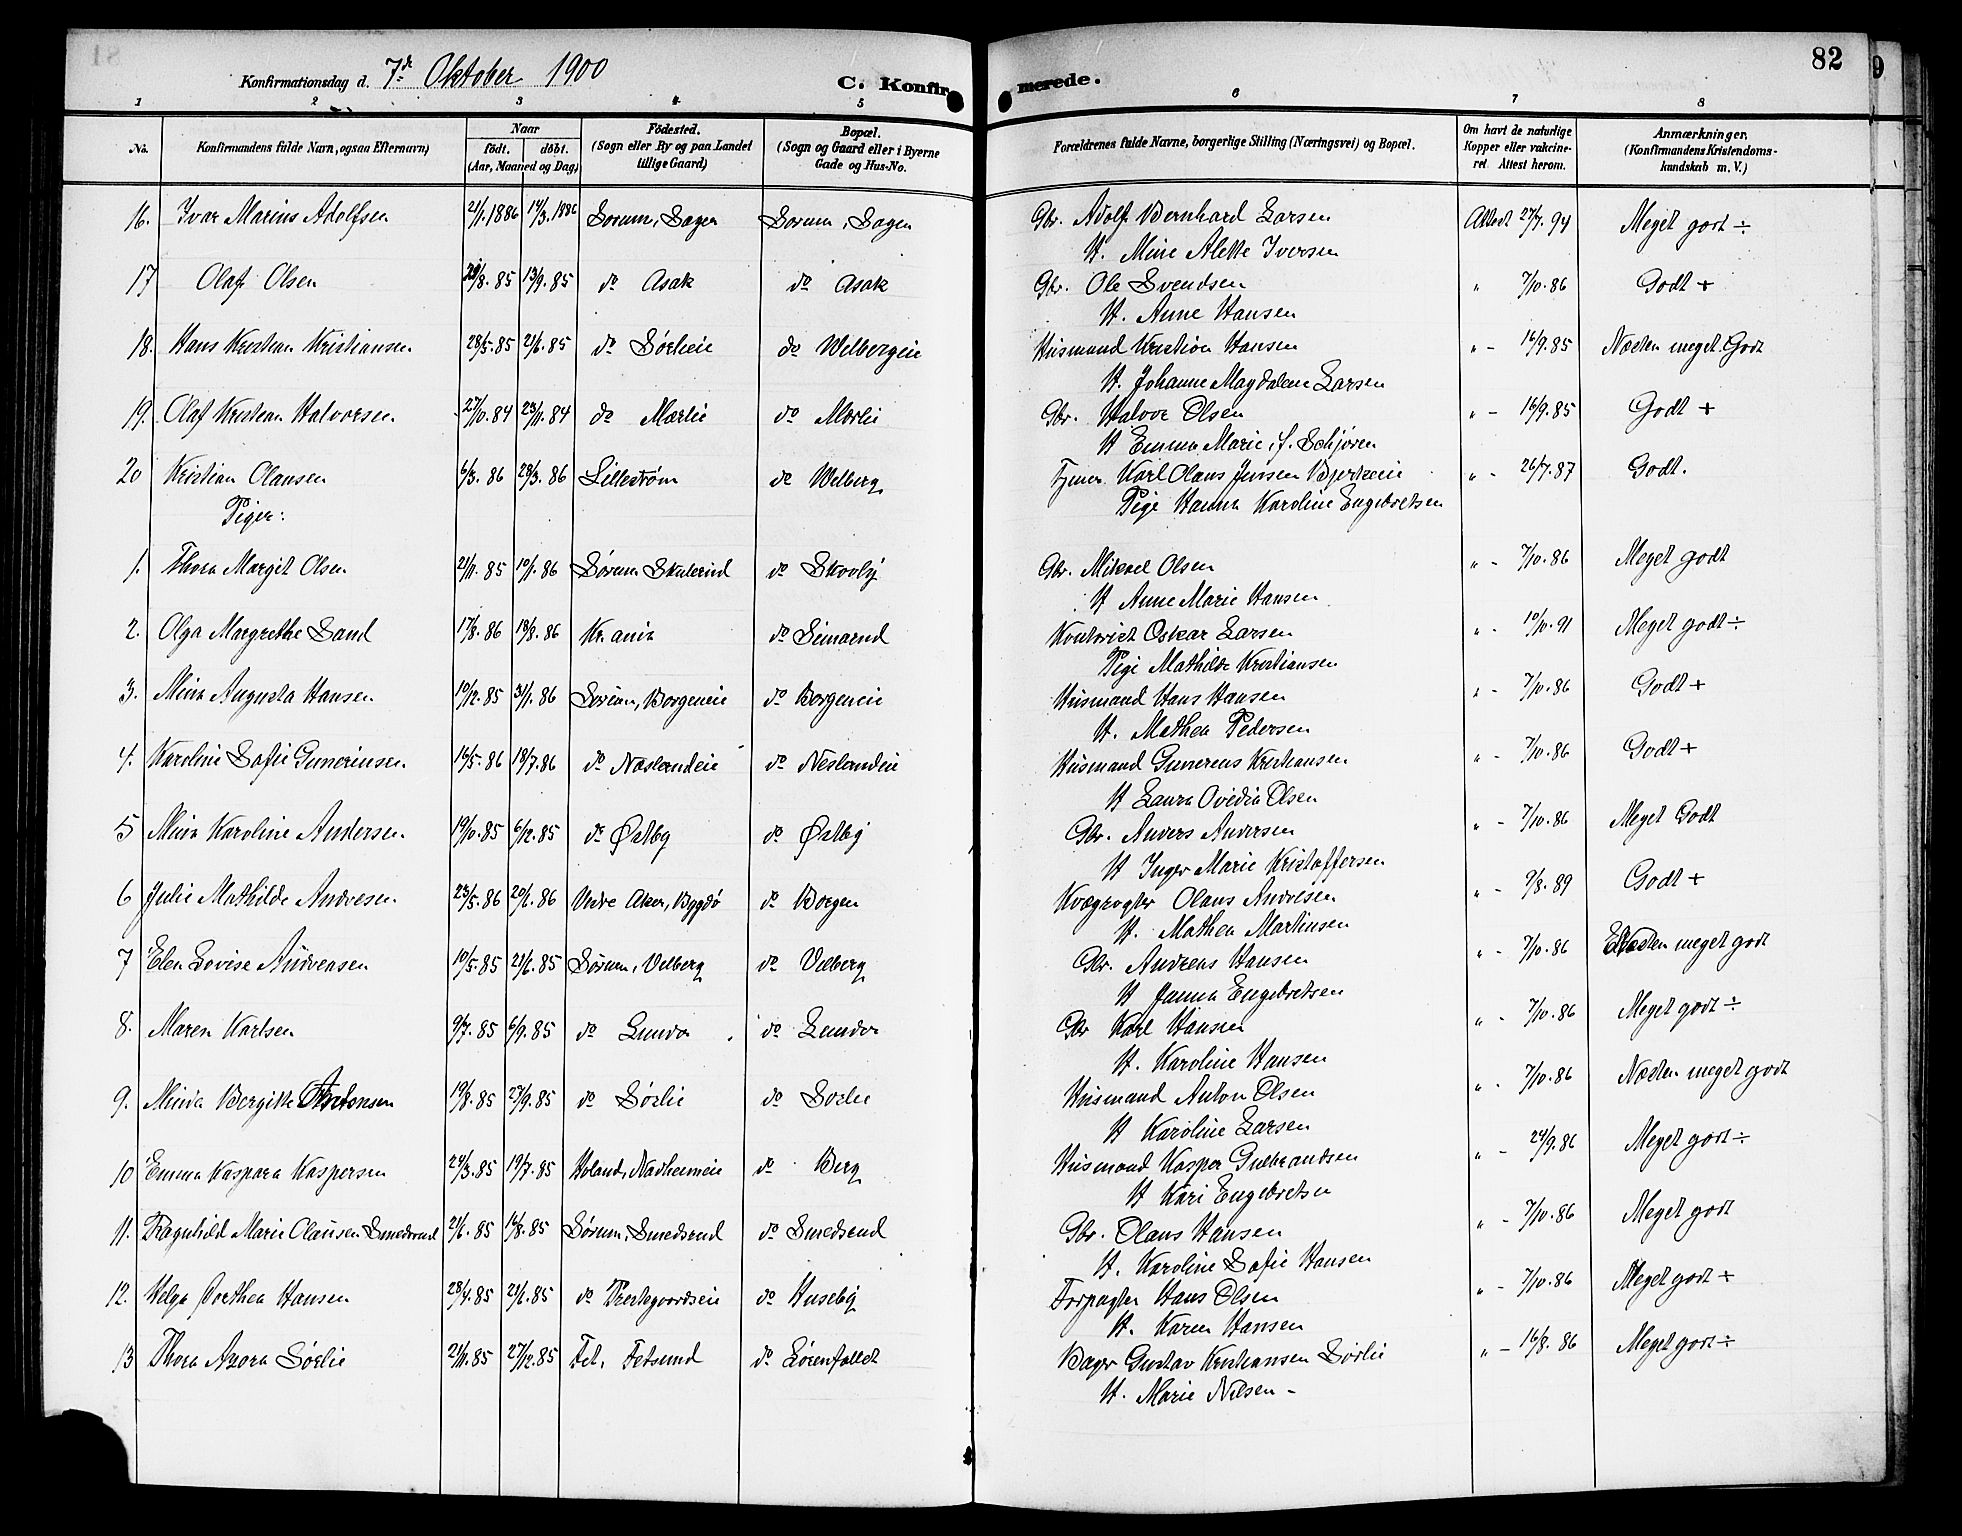 81
82
9
Konfirmationsdag d. 7de Oktober 1900
C. Konfirmerede.
1 2 3 4 5 6 7 8
No. Konfirmandens fulde Navn, ogsaa Efternavn) Naar født. døbt. (Aar, Maaned og Dag) Fødested. (Sogn eller By og paa Landet tillige Gaard) Bopæl. (Sogn og Gaard eller i Byerne Gade og Hus-No. Forældrenes fulde Navne, borgerlige Stilling (Næringsvei) og Bopæl. Om havt de naturlige Kopper eller vakcineret Attest herom. Anmærkninger, (Konfirmandens Kristendomskundskab m. V.)
16. Ivar Marius Adolfsen 21/1.1886 14/3.1886 Sørum, Sagen Sørum, Sagen Gbr. Adolf Bernhard Larsen Attest 27/7.94 Meget godt ÷
H. Mine Alette Iversen
17 Olaf Olsen /8.85 13/9.85 do Asak do Asak Gbr. Ole Svendsen " 7/10.86 Godt +
H. Anne Hansen
18. Hans Kristian Kristiansen 28/5.85 21/6.85 do Sørlieie do Welbergeie Husmand Kristian Hansen " - 16/9.85 Næsten meget Godt
H. Johanne Magdalene Larsen
19. Olaf Kristian Halvorsen 27/10.84 23/11.84 do Mærlie do Mærli Gbr. Halvor Olsen " - 16/9.85 Godt +
H Emma Marie, f. Schjøren
20 Kristian Olausen 6/3.86 28/3.86 Lillestrøm do Welberg Tjener Karl Olaus Jensen Bjerkeeie " - 26/7.87 Godt.
Piger: Pige Hanna Karoline Engebretsen
1. Thora Margit Olsen 21/11.85 10/1.86 Sørum Skulerud do Skovby Gbr. Mikael Olsen " - 7/10.86 Meget godt
H Anne Marie Hansen
2. Olga Margrethe Sand 17/8.86 18/8.86 Kr.ania do Leinerud Kontorist Oskar Larsen " - 10/10.91 Meget godt ÷
Pige Mathilde Kristiansen
3. Mina Augusta Hansen 10/12.85 31/1.86 Sørum, Borgeneie do Borgeneie Husmand Hans Hansen " - 7/10.86 Godt +
H. Mathea Pedersen
4. Karoline Sofie Gunerinsen 16/5.86 18/7.86 do Næslandeie do Neslandeie Husmand Gunerens Kristiansen " - 7/10.86 Godt +
H Laura Ovedia Olsen
5 Mina Karoline Andersen 19/10.85 6/12.85 do Østby do Østby Gbr. Anders Andersen " - 7/10.86 Meget Godt
H Inger Marie Kristoffersen
6 Julie Mathilde Andresen 23/5.86 20/6.86 Vestre Aker, Bygdø do Borgen Kvægrøgter Olaus Andresen " - 9/8.89 Godt +
H. Mathea Martinsen
7 Elen Lovise Andreasen 10/5.85 21/6.85 Sørum, Velberg do Velberg Gbr. Andreas Hansen " - 7/10.86 Næsten meget godt
H Janna Engebretsen
8. Maren Karlsen 9/7.85 6/9.85 do Lunder do Lunder Gbr Karl Hansen " - 7/10.86 Meget godt ÷
H. Karoline Hansen
9. Minda Bergitte Antonsen 19/8.85 27/9.85 do Sørlie do Sørlie Husmand Anton Olsen " - 7/10.86 Næsten meget godt
H Karoline Larsen
10 Emma Kaspara Kaspersen 24/3.85 19/7.85 Høland, Nadheimeie do Berg Husmand Kasper Gulbrandsen " - 24/9.86 Meget godt ÷
H Kari Engebretsen
11. Ragnhild Marie Olausen Smedsrud 21/6.85 16/8.85 Sørum, Smedsrud do Smedsrud Gbr. Olaus Hansen " - 7/10.86 Meget godt
H. Karoline Sofie Hansen
12. Helga Dorthea Hansen 28/4.85 21/6.85 do Prestegaardseie do Huseby Forpagter Hans Olsen " - 7/10.86 Meget godt +
H. Karen Hansen
13 Thora Azora Sørlie 21/11.85 27/12.85 Fet, Fetsund do Sørenfaldt Bager Gustav Kristiansen Sørlie " - 16/8.86 Meget godt ÷
H. Marie Nilsen -